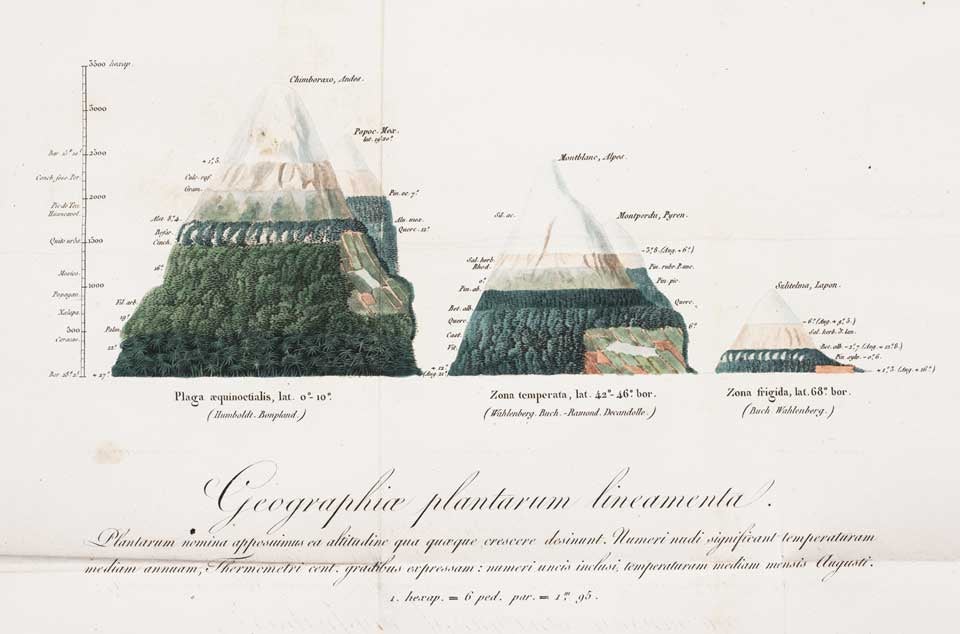 3500 hexap.
3000
2500
2000
1500
1000
500
Quito urbs.
Mexico.
Popayan.
Xalapa.
Caracas.
Chimborazo, Andes.
Popoc. Mex.
lat. 19°20'.
+ 1°,5.
Calc. rgf.
Gram.
Alst. 8°,4.
Befar.
Cinch.
16°.
Fil. arb.
19°.
Palm.
22°.
+ 27°.
Pin. oc. 7°.
Aln. mex.
Querc. 12°.
Montblanc, Alpes.
Montperdu, Pyren.
Sal. herb.
Rhod.
0°.
Pin. ab.
Bet. alb.
Querc.
Cast.
Vit.
- 3°,8. (Aug. + 6°.)
Pin. rubr. P. unc.
Pin. pic.
Querc.
6°.
+ 12°.
(Aug. 21°.)
Sulitelma, Lapon.
- 6°. (Aug. + 9°,5.)
Sal. herb. S. lan.
Bet. alb. - 2°,7. (Aug. + 12°,8.)
Pin. sylv. - 0°,6.
+ 1°,3. (Aug. + 16°.)
Plaga æquinoctialis, lat. 0°- 10°.
(Humboldt. Bonpland.)
Zona temperata, lat. 42°- 46°. bor.
(Wahlenberg. Buch. - Ramond. Decandolle.)
Zona frigida, lat. 68°. bor.
(Buch. Wahlenberg.)
Geographiæ plantarum lineamenta.
Plantarum nomina apposuimus ea altitudine qua quæque crescere desinunt. Numeri nudi significant temperaturam
mediam annuam, Thermometri cent. gradibus expressam: numeri uncis inclusi, temperaturam mediam mensis Augusti.
1. hexap. = 6 ped. par. = 1.ᵐ 95.